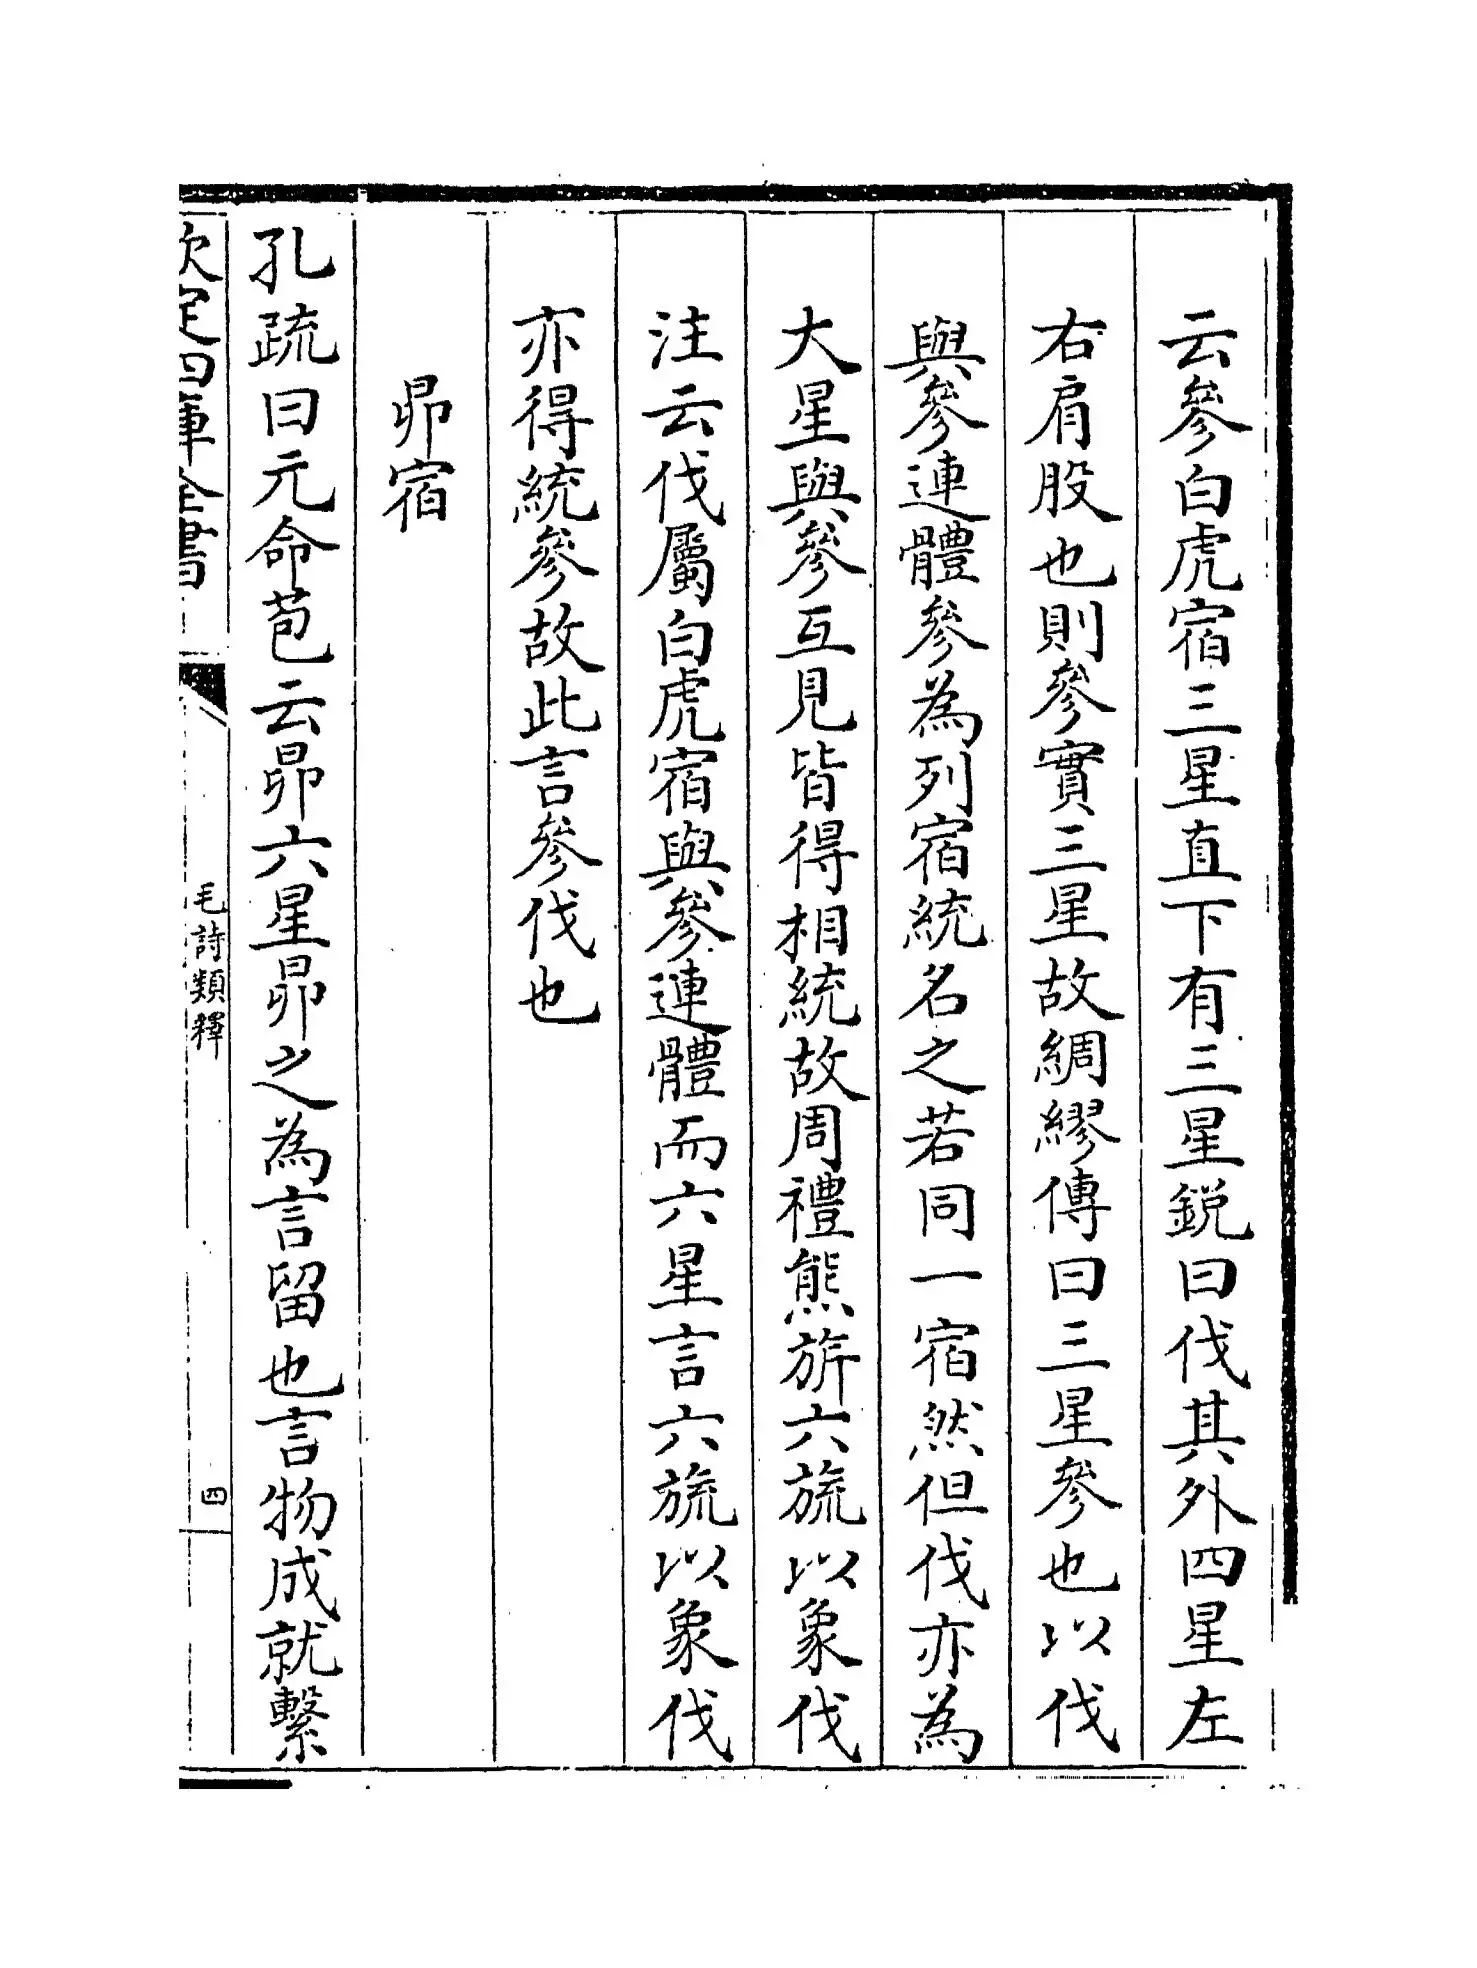 云參白虎宿三星直下有三星鋭曰伐其外四星左
右肩股也則參實三星故綢繆傳曰三星參也以伐
與參連體參為列宿統名之若同一宿然但伐亦為
大星與參互見皆得相統故周禮熊旂六旒以象伐
注云伐屬白虎宿與參連體而六星言六旒以象伐
亦得統參故此言參伐也
昴宿
孔疏曰元命苞云昴六星昴之為言留也言物成就繫
欽定四庫全書
毛詩類釋
四